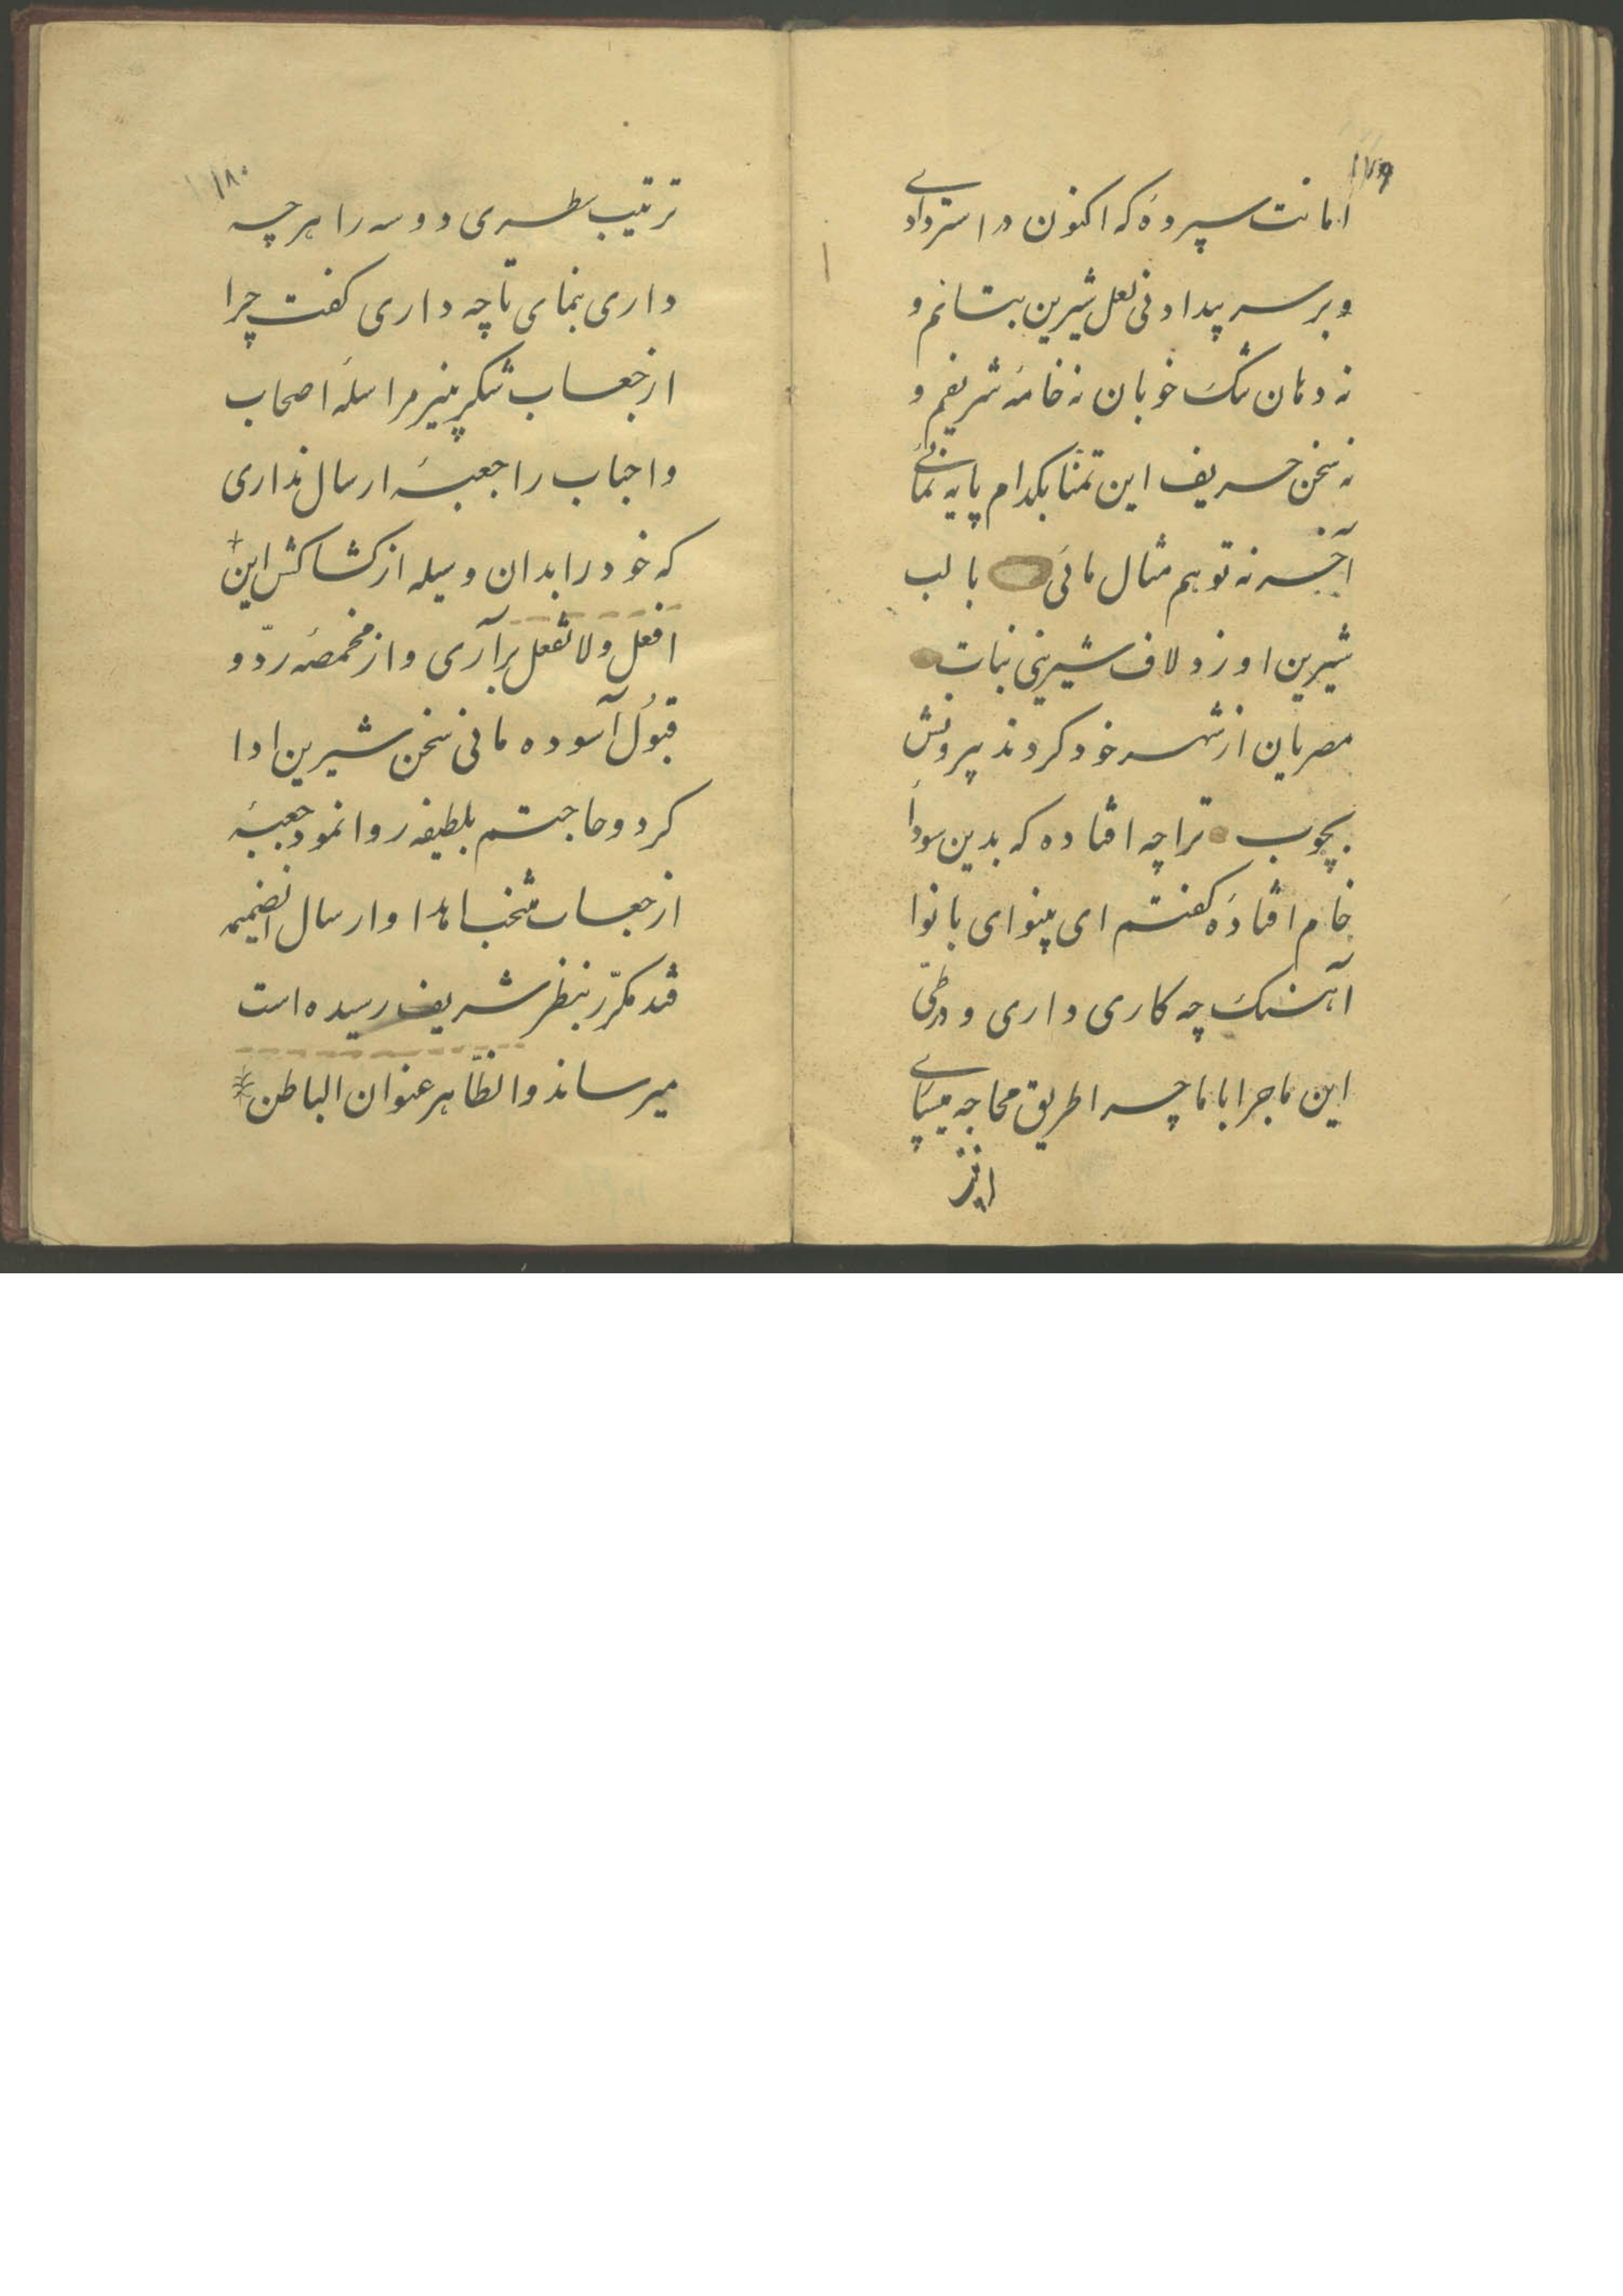 ۱۷۹
امانت سپردهٔ که اکنون در استردادی
و بر سر بیدادنی لعل شیرین بستانم و
نه دهان تنک خوبان نه خامهٔ شریفم و
نه سخن حریف این تمنا بکدام پایه نمائی
آخر نه تو هم مثال مائی با لب
شیرین او زد لاف شیرینی نبات
مصریان از شهر خود کردند بیرونش
بچوب ترا چه افتاده که بدین سودا
خام افتادهٔ کفتم ای بینوای با نوا
آهنک چه کاری داری و در طیّ
این ماجرا با ما چرا طریق محاجه میسپاری
۱۸۰
ترتیب سطری دو سه را هر چه
داری بنمای تا چه داری کفت چرا
از جعاب شکر بنیر مراسلهٔ اصحاب
و احباب را جعبهٔ ارسال نداری
که خود را بدان وسیله از کشاکش این
افعل و لا تفعل برآری و از مخمصهٔ ردّ و
قبول آسوده مانی سخن شیرین ادا
کرد و حاجتم بلطیفه روا نمود جعبهٔ
از جعاب منتخب اهدا و ارسال انضمیمه
قند مکرّر بنظر شریف رسیده است
میرساند والظّاهر عنوان الباطن